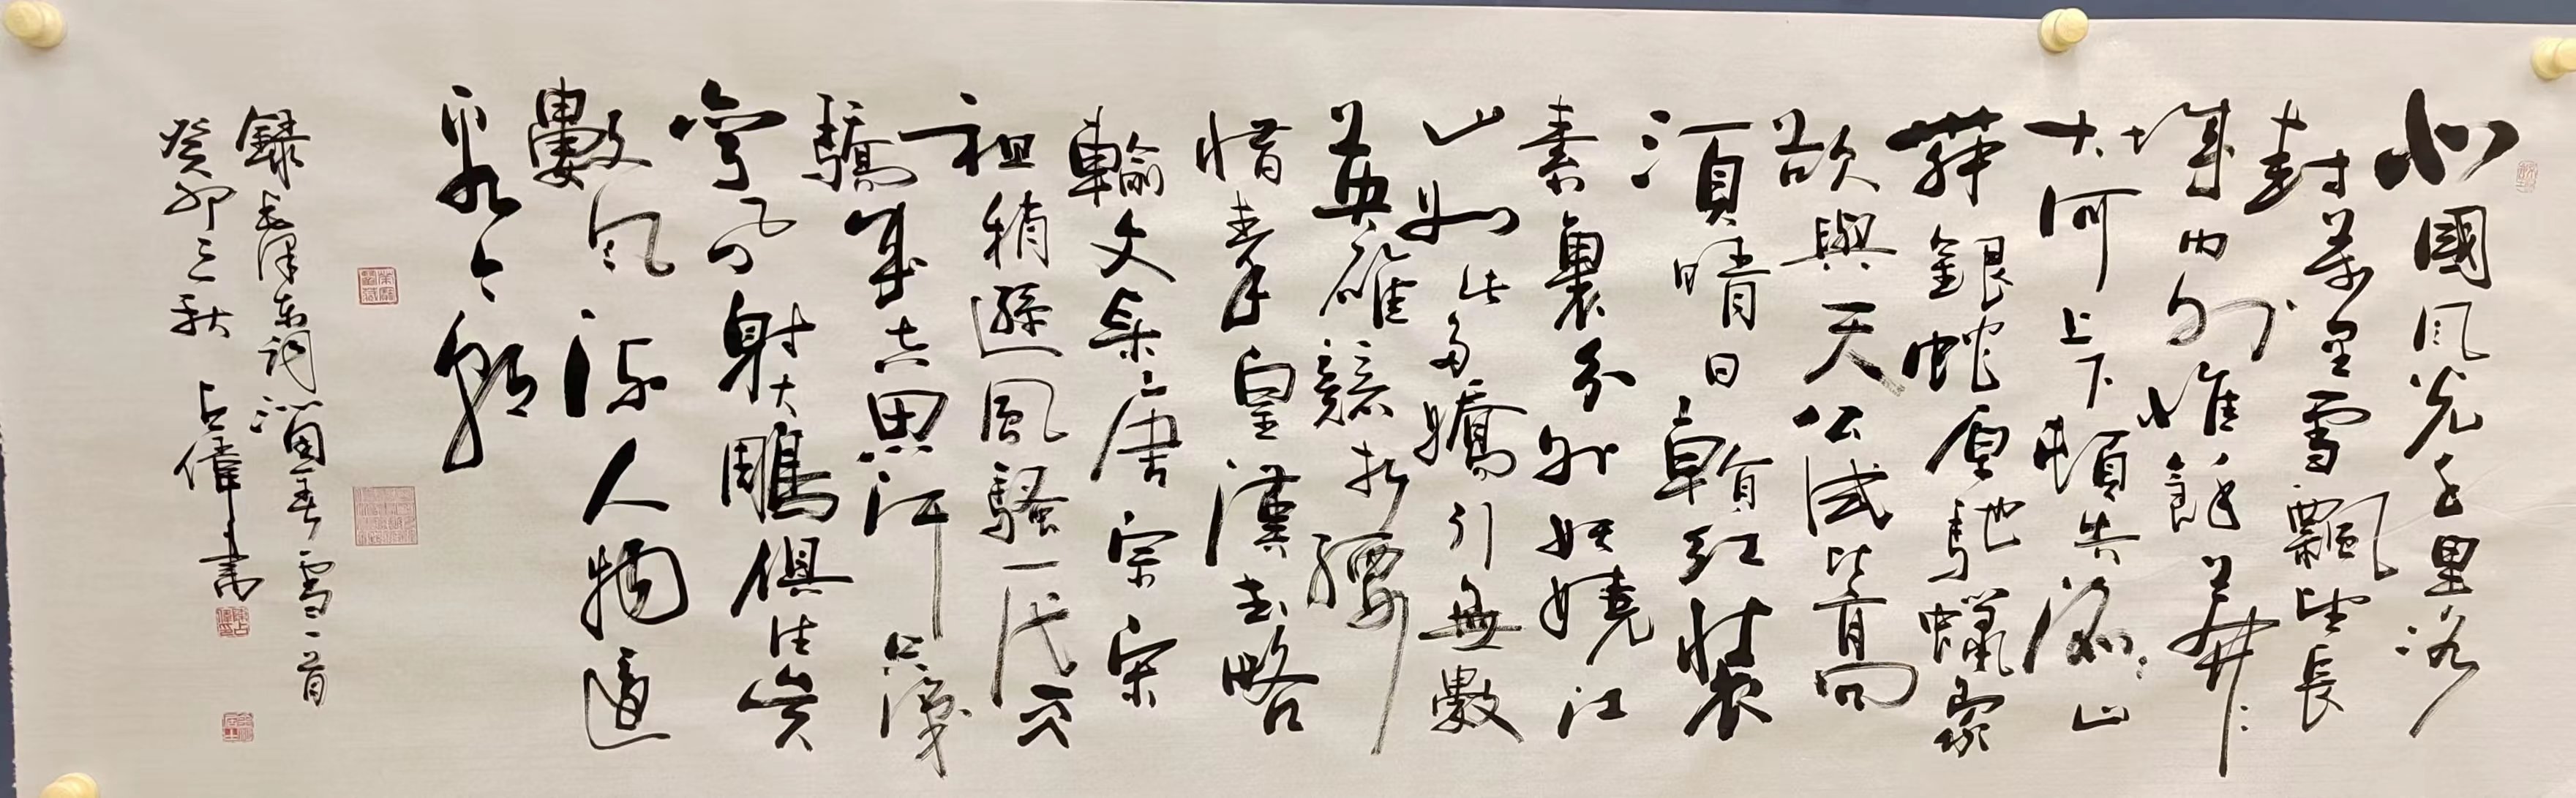 北國風光千里冰
封萬里雪飄望長
城內外惟餘莽莽
大河上下頓失滔滔山
舞銀蛇原馳蠟象
欲與天公試比高
須晴日看紅裝
素裹分外妖嬈江
山如此多嬌引無數
英雄競折腰
惜秦皇漢武略
輸文采唐宗宋
祖稍遜風騷一代天
驕成吉思汗只識
彎弓射大鵰俱往矣
數風流人物還
看今朝
錄毛澤東詞沁園春雪一首
癸卯三秋占偉書